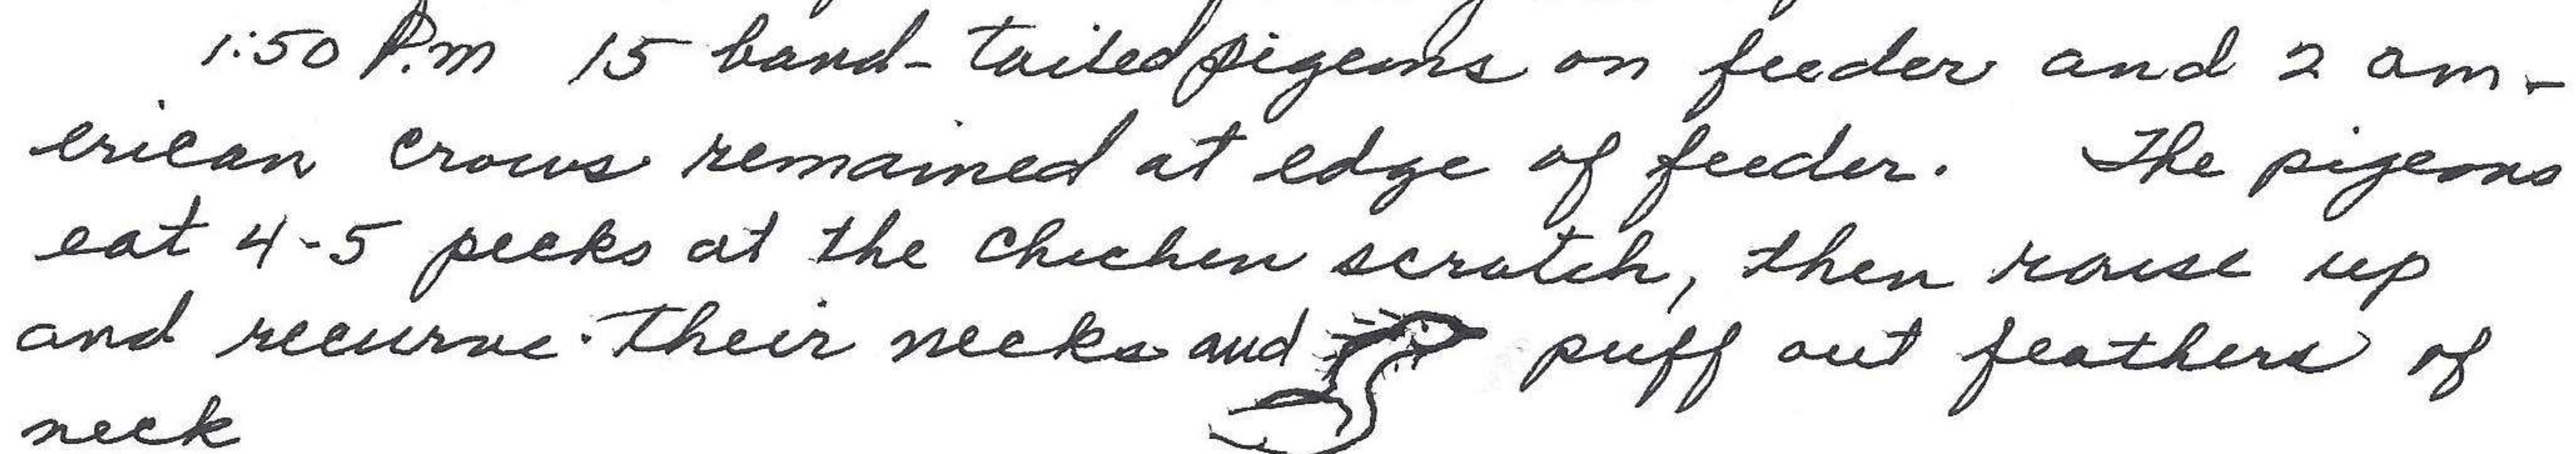 1:50 P.m 15 band-tailed pigeons on feeder and 2 am-
erican crows remained at edge of feeder. The pigeons
eat 4-5 pecks at the chicken scratch, then raise up
and recurve their necks and puff out feathers of
neck